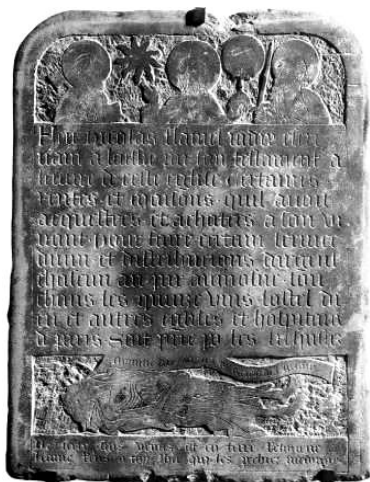 Feu nicolas flamel iadis escri
vain a laissie par son testament a
leuvre de ceste eglise certaines
rentes et maisons quil avoit
acquestees et achatees a son vi
vant pour faire certain service
divin et distributions dargent
chascun an par aumosne tou
chans les quinze vins lostel di
eu et autres eglises et hospitaux
a paris Soit prie les
De terre suis venus et en terre retourne
Lame rens a toy ihu qui les pechiez pardonne